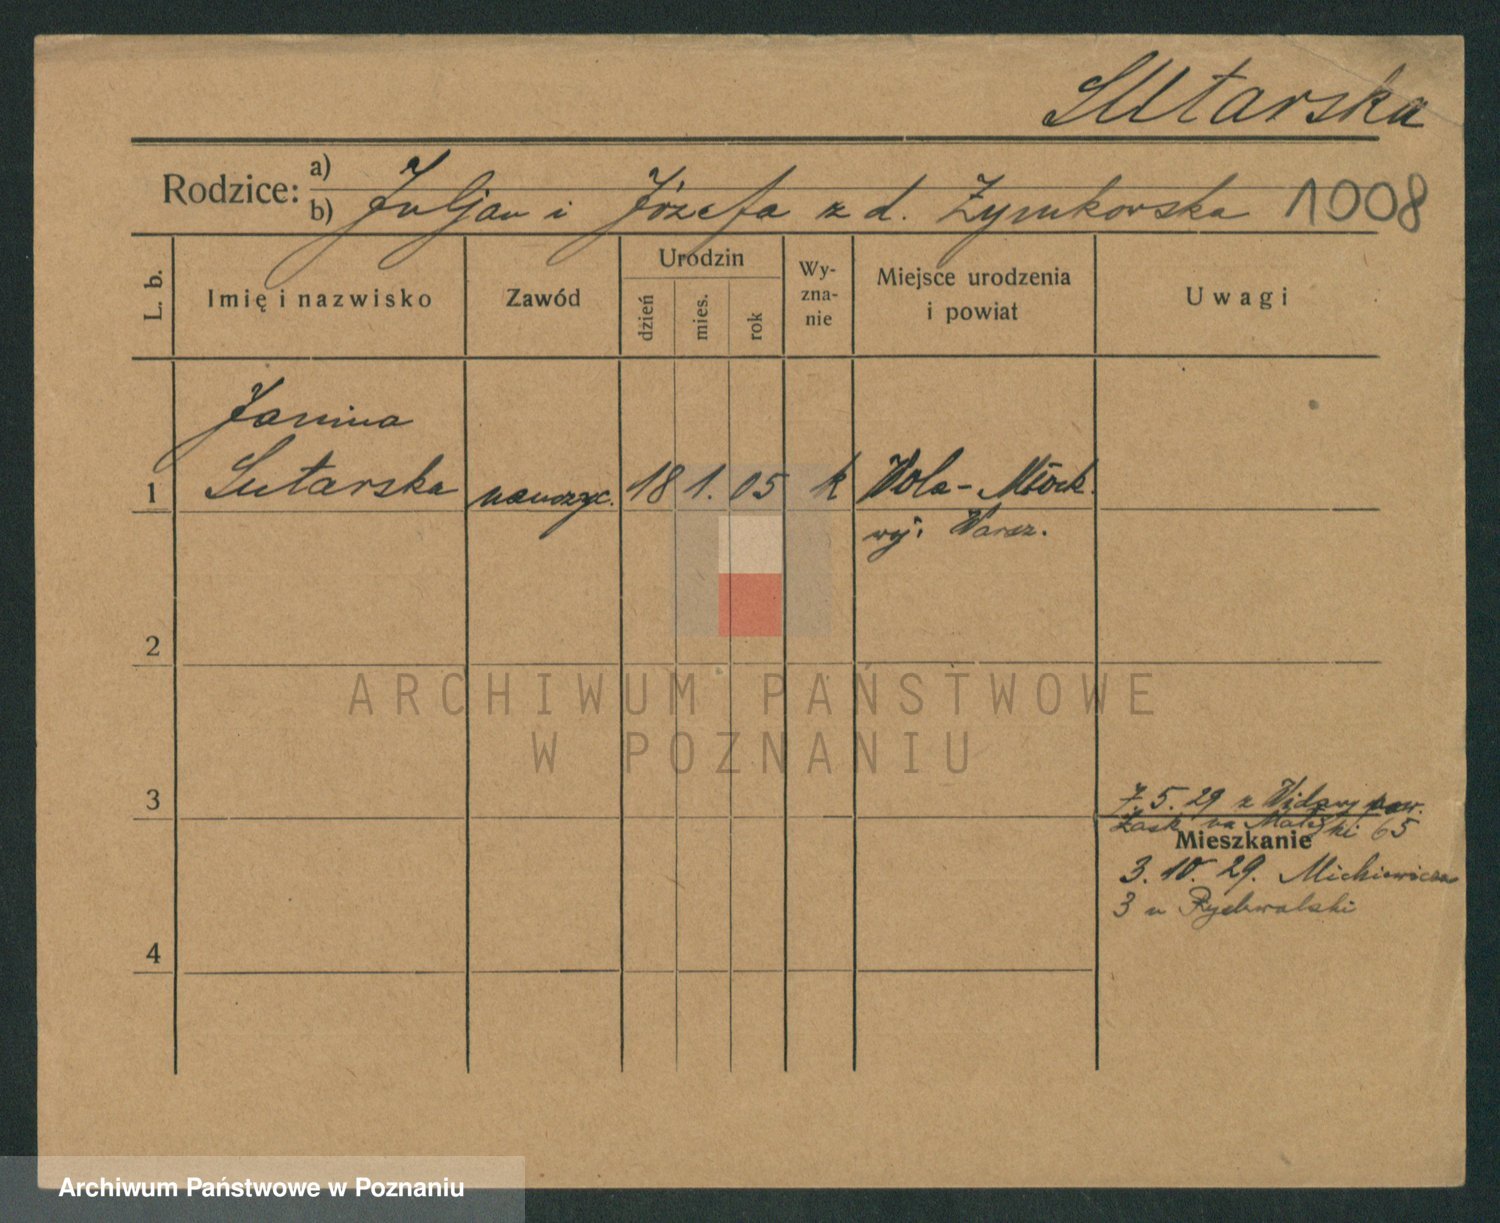 Sutarska
Rodzice: a)
b) Juljan i Józefa z d. Żymkowska 1008
L. b.
Imię i nazwisko
Zawód
Urodzin
dzień
mies.
rok
Wy-
zna-
nie
Miejsce urodzenia
i powiat
Uwagi
Janina
1 Sutarska nauczyc. 18 1. 05 k Wola-Młock.
woj. Warsz.
2
ARCHIWUM PAŃSTWOWE
W POZNANIU
3
7.5.29 z Widawy pow.
Łask na 65
Mieszkanie
3.10.29. Mickiewicza
3 u Rychwalski
4
Archiwum Państwowe w Poznaniu